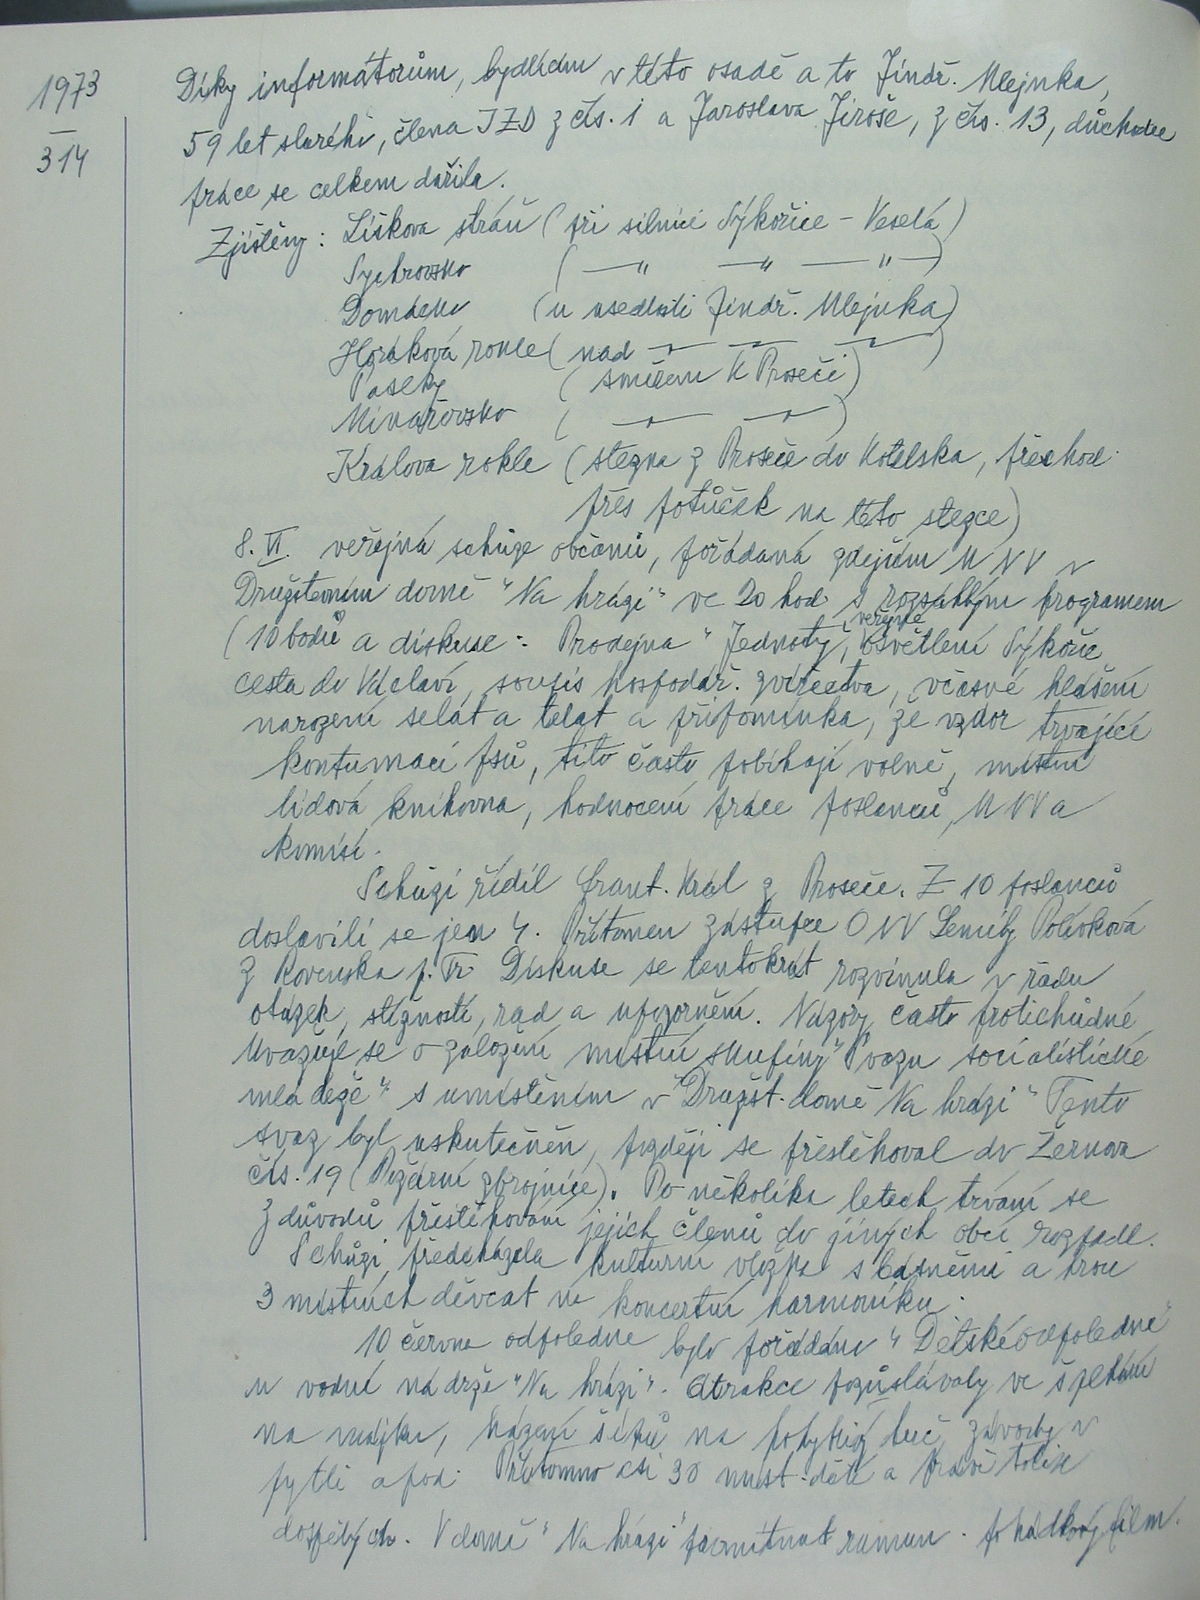 1973
—
314
Díky informátorům, bydlícím v této osadě a to Jindř. Mlejnka,
59 let starého, člena JZD z čís. 1 a Jaroslava Jiroše, z čís. 13, důchodce
práce se celkem dařila.
Zjištěny: Liškova stráň (při silnici Sýkořice – Veselá)
Sychrovsko ( — " — " — " — )
Domácko (u usedlosti Jindř. Mlejnka)
Horákova rokle (nad — " — " — )
Paseky (směrem k Proseči)
Minařovsko ( — " — " — )
Králova rokle (stezka z Proseče do Kotelska, přechod
přes potůček na této stezce)
8. VI. veřejná schůze občanů, pořádaná zdejším MNV v
Družstevním domě "Na hrázi" ve 20 hod. s rozsáhlým programem
(10 bodů a diskuse: Prodejna "Jednoty", veřejné osvětlení Sýkořic
cesta do Václaví, soupis hospodář. zvířectva, včasné hlášení
narození selat a telat a připomínka, že vzdor trvající
kontumaci psů, tito často pobíhají volně, místní
lidová knihovna, hodnocení práce poslanců, MNV a
komisí.
Schůzi řídil Frant. Král z Proseče. Z 10 poslanců
dostavili se jen 4. Přítomen zástupce ONV Semily Polívková
z Rovenska p. Tr. Diskuse se tentokrát rozvinula v řadu
otázek, stížností, rad a upozornění. Názory často protichůdné
Uvažuje se o založení místní skupiny "Svazu socialistické
mládeže" s umístěním v "Družst. domě Na hrázi" Tento
svaz byl uskutečněn, později se přestěhoval do Žernova
čís. 19 (Požární zbrojnice). Po několika letech trvání se
z důvodů přestěhování jejich členů do jiných obcí rozpadl.
Schůzi předcházela kulturní vložka s básněmi a hrou
3 místních děvčat na koncertní harmoniku.
10 června odpoledne bylo pořádáno "Dětské odpoledne"
u vodní nádrže "Na hrázi". Atrakce pozůstávaly ve šplhání
na májku, házení šišků na pohyblivý terč, závody v
pytli apod. Přítomno asi 30 míst. dětí a právě tolik
dospělých. V domě "Na hrázi" promítnut rumun. pohádkový film.